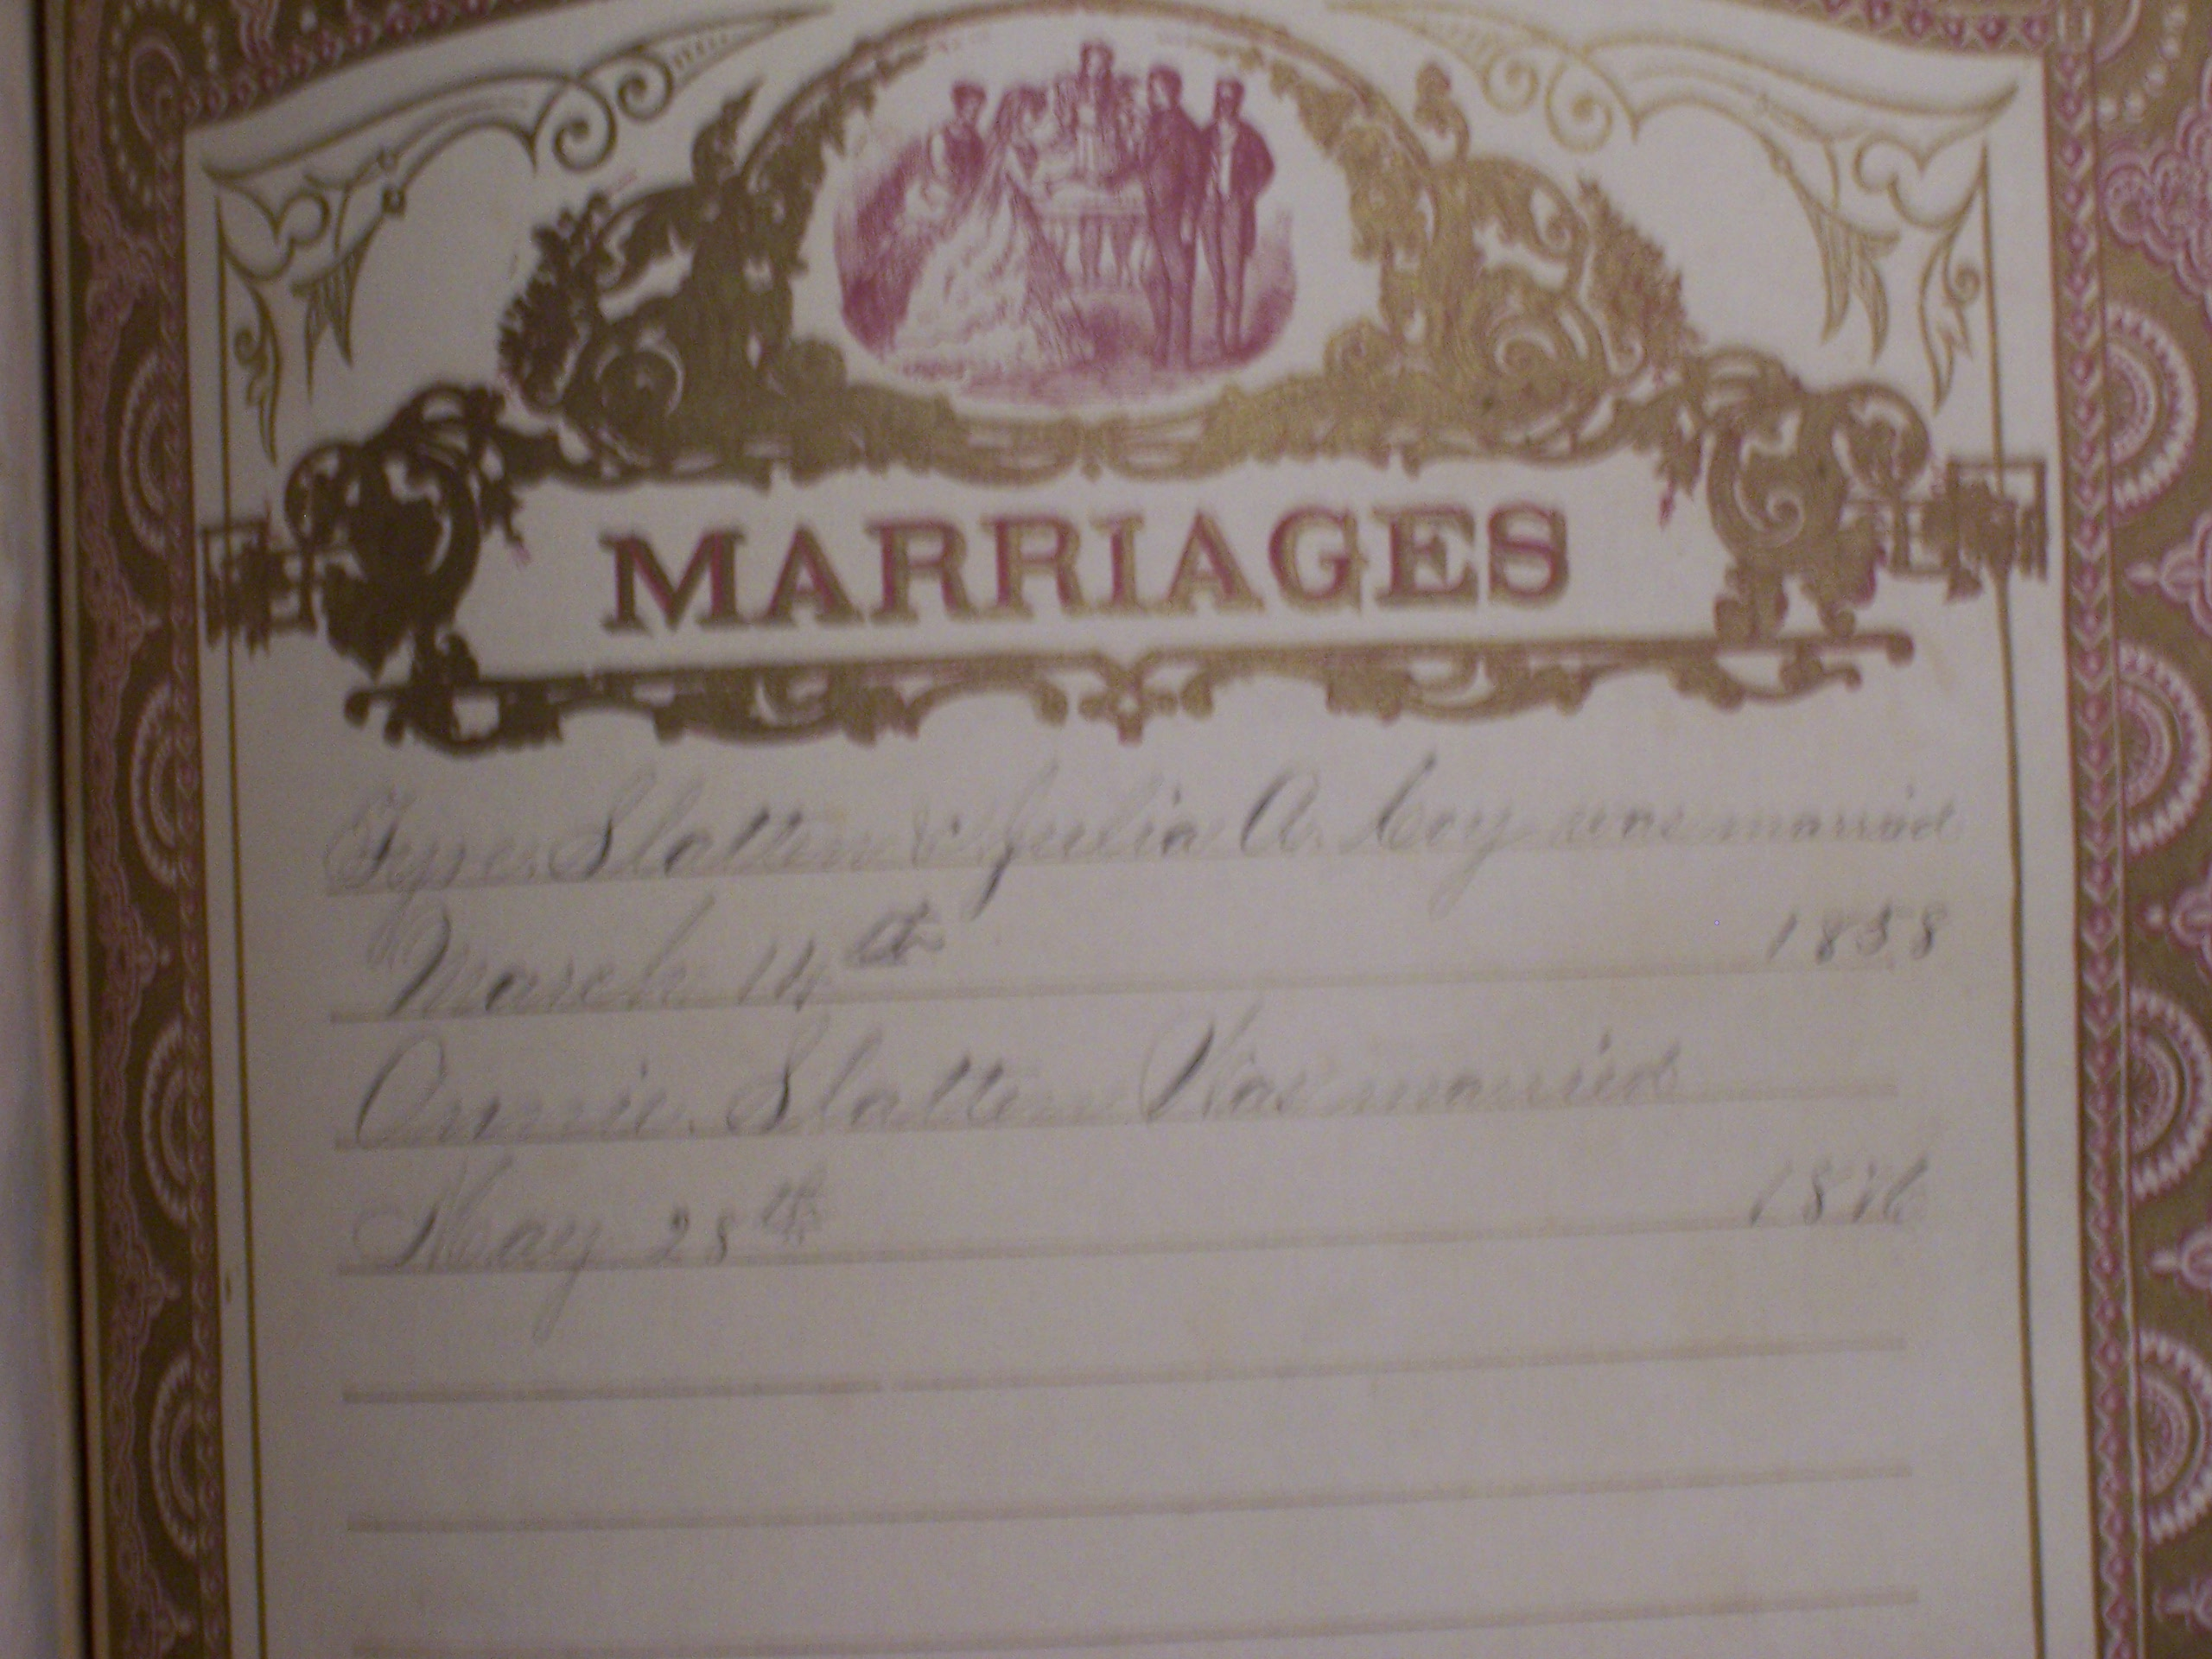 MARRIAGES
Tyre Slatten & Julia A. Coy was married
March 14th 1858
Annie Slatten Was married
May 28th 1876